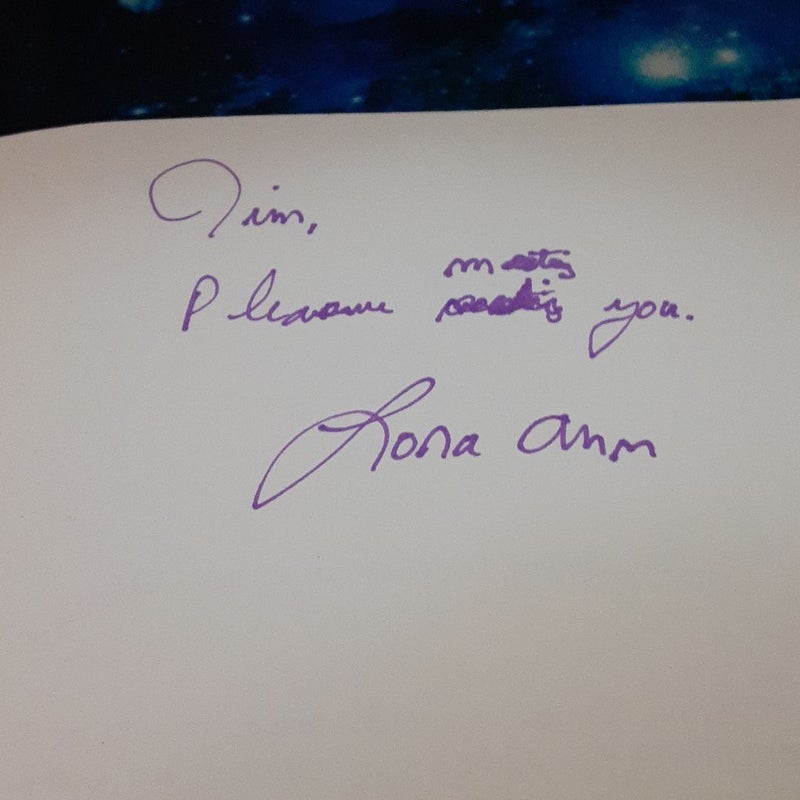 Tim,
Pleasure meeting you.
Lona Ann